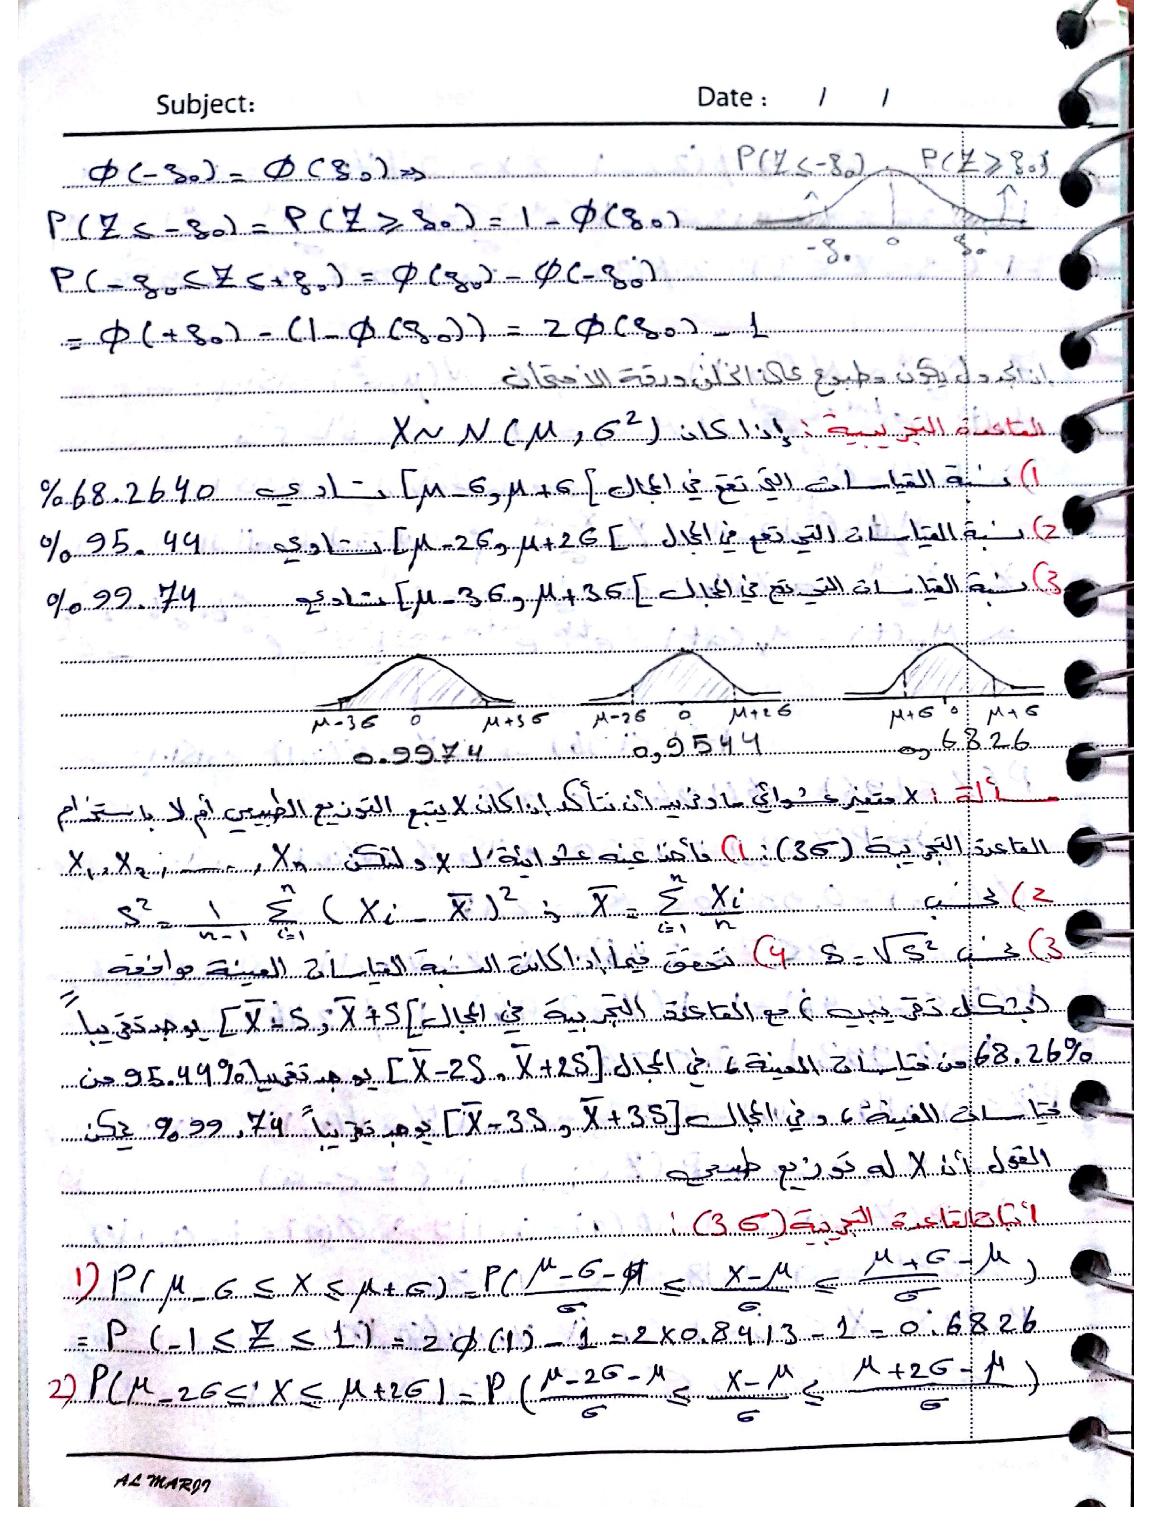 Subject:
Date : / /
Φ(-z₀) = Φ(z₀) ⇒
P(Z ≤ -z₀) P(Z ≥ z₀)
P(Z ≤ -z₀) = P(Z ≥ z₀) = 1 - Φ(z₀)
-z₀ 0 z₀
P(-z₀ ≤ Z ≤ +z₀) = Φ(z₀) - Φ(-z₀)
= Φ(+z₀) - (1 - Φ(z₀)) = 2Φ(z₀) - 1
ان الجدول يكون مطبوع ورقة الامتحان
القاعدة التجريبية : إذا كان X ~ N(μ, σ²)
1) نسبة القياسات التي تقع في المجال [μ-σ, μ+σ] تساوي %68.2640
2) نسبة القياسات التي تقع في المجال [μ-2σ, μ+2σ] تساوي %95.44
3) نسبة القياسات التي تقع في المجال [μ-3σ, μ+3σ] تساوي %99.74
μ-3σ 0 μ+3σ μ-2σ 0 μ+2σ μ+σ 0 μ+σ
0.9974 0,9544 0,6826
مسألة : X متغير عشوائي ما ونريد أن نتأكد إذا كان X يتبع التوزيع الطبيعي أم لا باستخدام
القاعدة التجريبية (3σ) : 1) نأخذ عينة عشوائية لـ X ولتكن X₁, X₂, ......, Xn
2) نحسب X̄ = Σⁿᵢ₌₁ Xi/n ; S² = 1/(n-1) Σⁿᵢ₌₁ (Xi - X̄)²
3) نحسب S = √S² 4) نتحقق فيما إذا كانت النسبة القياسات العينة موافقة
(بشكل تقريبي) مع القاعدة التجريبية في المجال [X̄-S, X̄+S] يوجد تقريباً
68.26% من قياسات العينة، في المجال [X̄-2S, X̄+2S] يوجد تقريبا 95.44% من
قياسات العينة، وفي المجال [X̄-3S, X̄+3S] يوجد تقريباً 99.74% يمكن
القول أن X له توزيع طبيعي
اثبات القاعدة التجريبية (3σ) :
1) P(μ-σ ≤ X ≤ μ+σ) = P((μ-σ-μ)/σ ≤ (X-μ)/σ ≤ (μ+σ-μ)/σ)
= P(-1 ≤ Z ≤ 1) = 2Φ(1) - 1 = 2×0.8413 - 1 = 0.6826
2) P(μ-2σ ≤ X ≤ μ+2σ) = P((μ-2σ-μ)/σ ≤ (X-μ)/σ ≤ (μ+2σ-μ)/σ)
AL MARJI